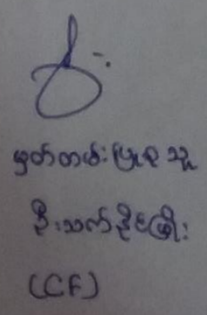 မှတ်တမ်းပြုစုသူ
ဦးသက်နိုင်ဦး
(CF)